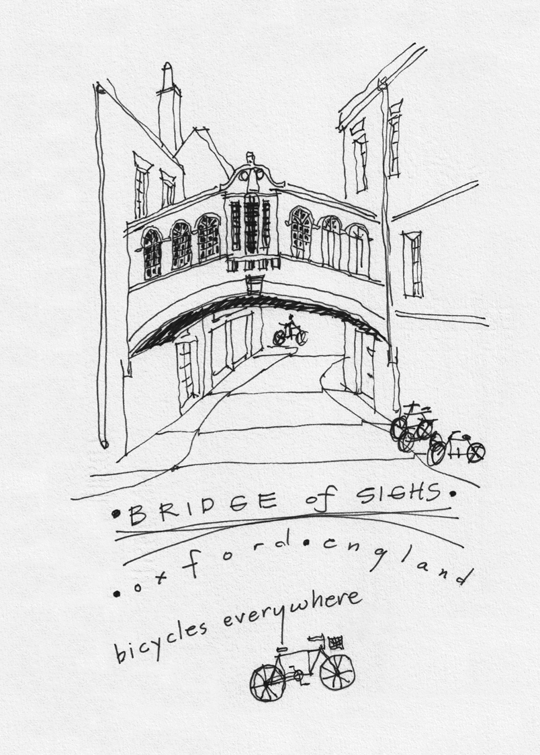 • BRIDGE of SIGHS •
• oxford • england
bicycles everywhere